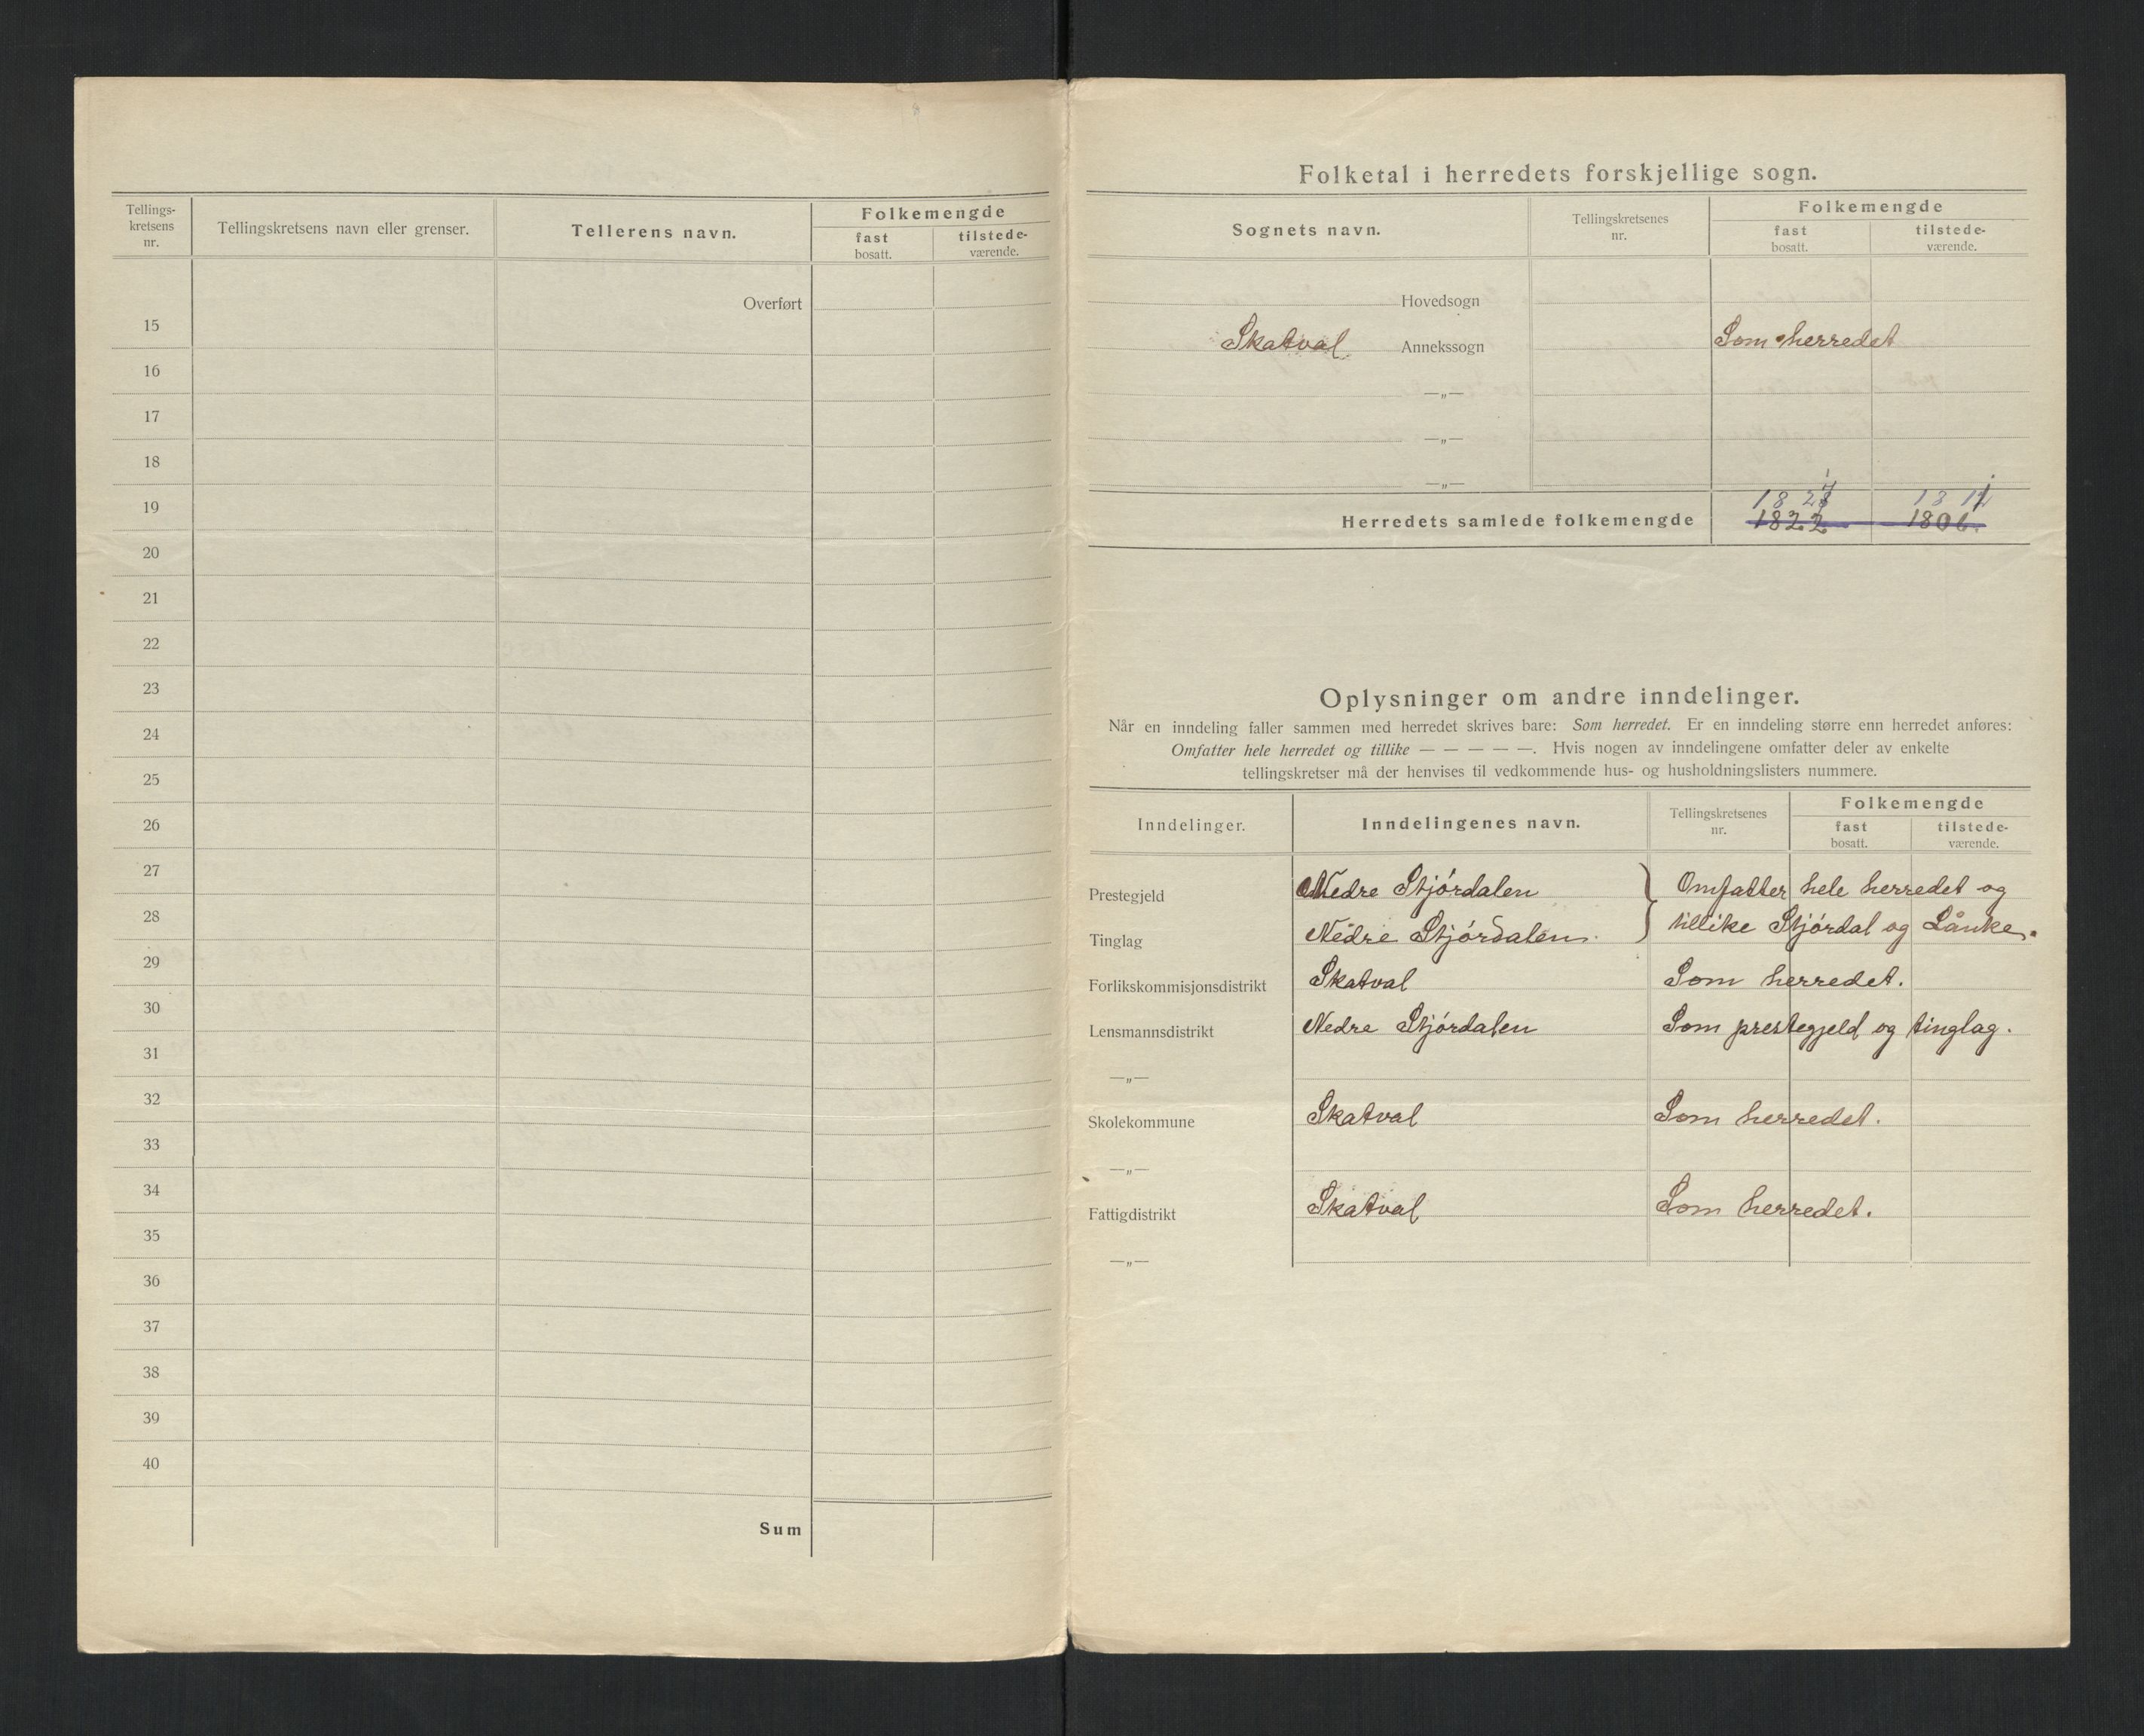 Tellings-
kretsens
nr.
Tellingskretsens navn eller grenser.
Tellerens navn.
Folkemengde
fast
bosatt.
tilstede-
værende.
Overført
15
16
17
18
19
20
21
22
23
24
25
26
27
28
29
30
31
32
33
34
35
36
37
38
39
40
Sum
Folketal i herredets forskjellige sogn.
Sognets navn.
Tellingskretsenes
nr.
Folkemengde
fast
bosatt.
tilstede-
værende.
Hovedsogn
Skatval Annekssogn Som herredet
—„—
—„—
—„—
Herredets samlede folkemengde 1822 1806.
Oplysninger om andre inndelinger.
Når en inndeling faller sammen med herredet skrives bare: Som herredet. Er en inndeling større enn herredet anføres:
Omfatter hele herredet og tillike — — — — —. Hvis nogen av inndelingene omfatter deler av enkelte
tellingskretser må der henvises til vedkommende hus- og husholdningslisters nummere.
Inndelinger.
Inndelingenes navn.
Tellingskretsenes
nr.
Folkemengde
fast
bosatt.
tilstede-
værende.
Prestegjeld Nedre Stjórdalen } Omfatter hele herredet og
Tinglag Nedre Stjórdalen. tillike Stjórdal og Lånke.
Forlikskommisjonsdistrikt Skatval Som herredet.
Lensmannsdistrikt Nedre Stjórdalen Som prestegjeld og tinglag.
—„—
Skolekommune Skatval Som herredet.
—„—
Fattigdistrikt Skatval Som herredet.
—„—